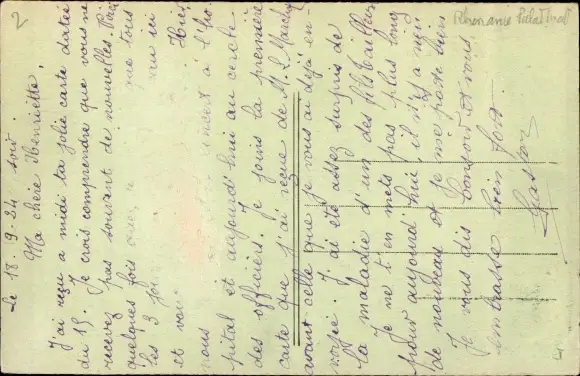 2
Rhénanie Palatinat
Le 18-9-24 soir
Ma chère Henriette,
J'ai reçu à midi ta jolie carte datée
du 15. Je crois comprendre que vous ne
recevez pas souvent de nouvelles.
quelques fois que tous
les 3 jours
et Hier
nous à l'hô-
pital et aujourd'hui au cercle
des officiers. Je joins la première
carte que j'ai reçue de M. L.
avant celle que je vous ai déjà en-
voyée. J'ai été assez surpris de
la maladie d'un des fils
Je ne t'en mets pas plus long
pour aujourd'hui, il n'y a rien
de nouveau et je me porte bien
Je vous dis bonsoir et vous
embrasse bien fort
Gaston